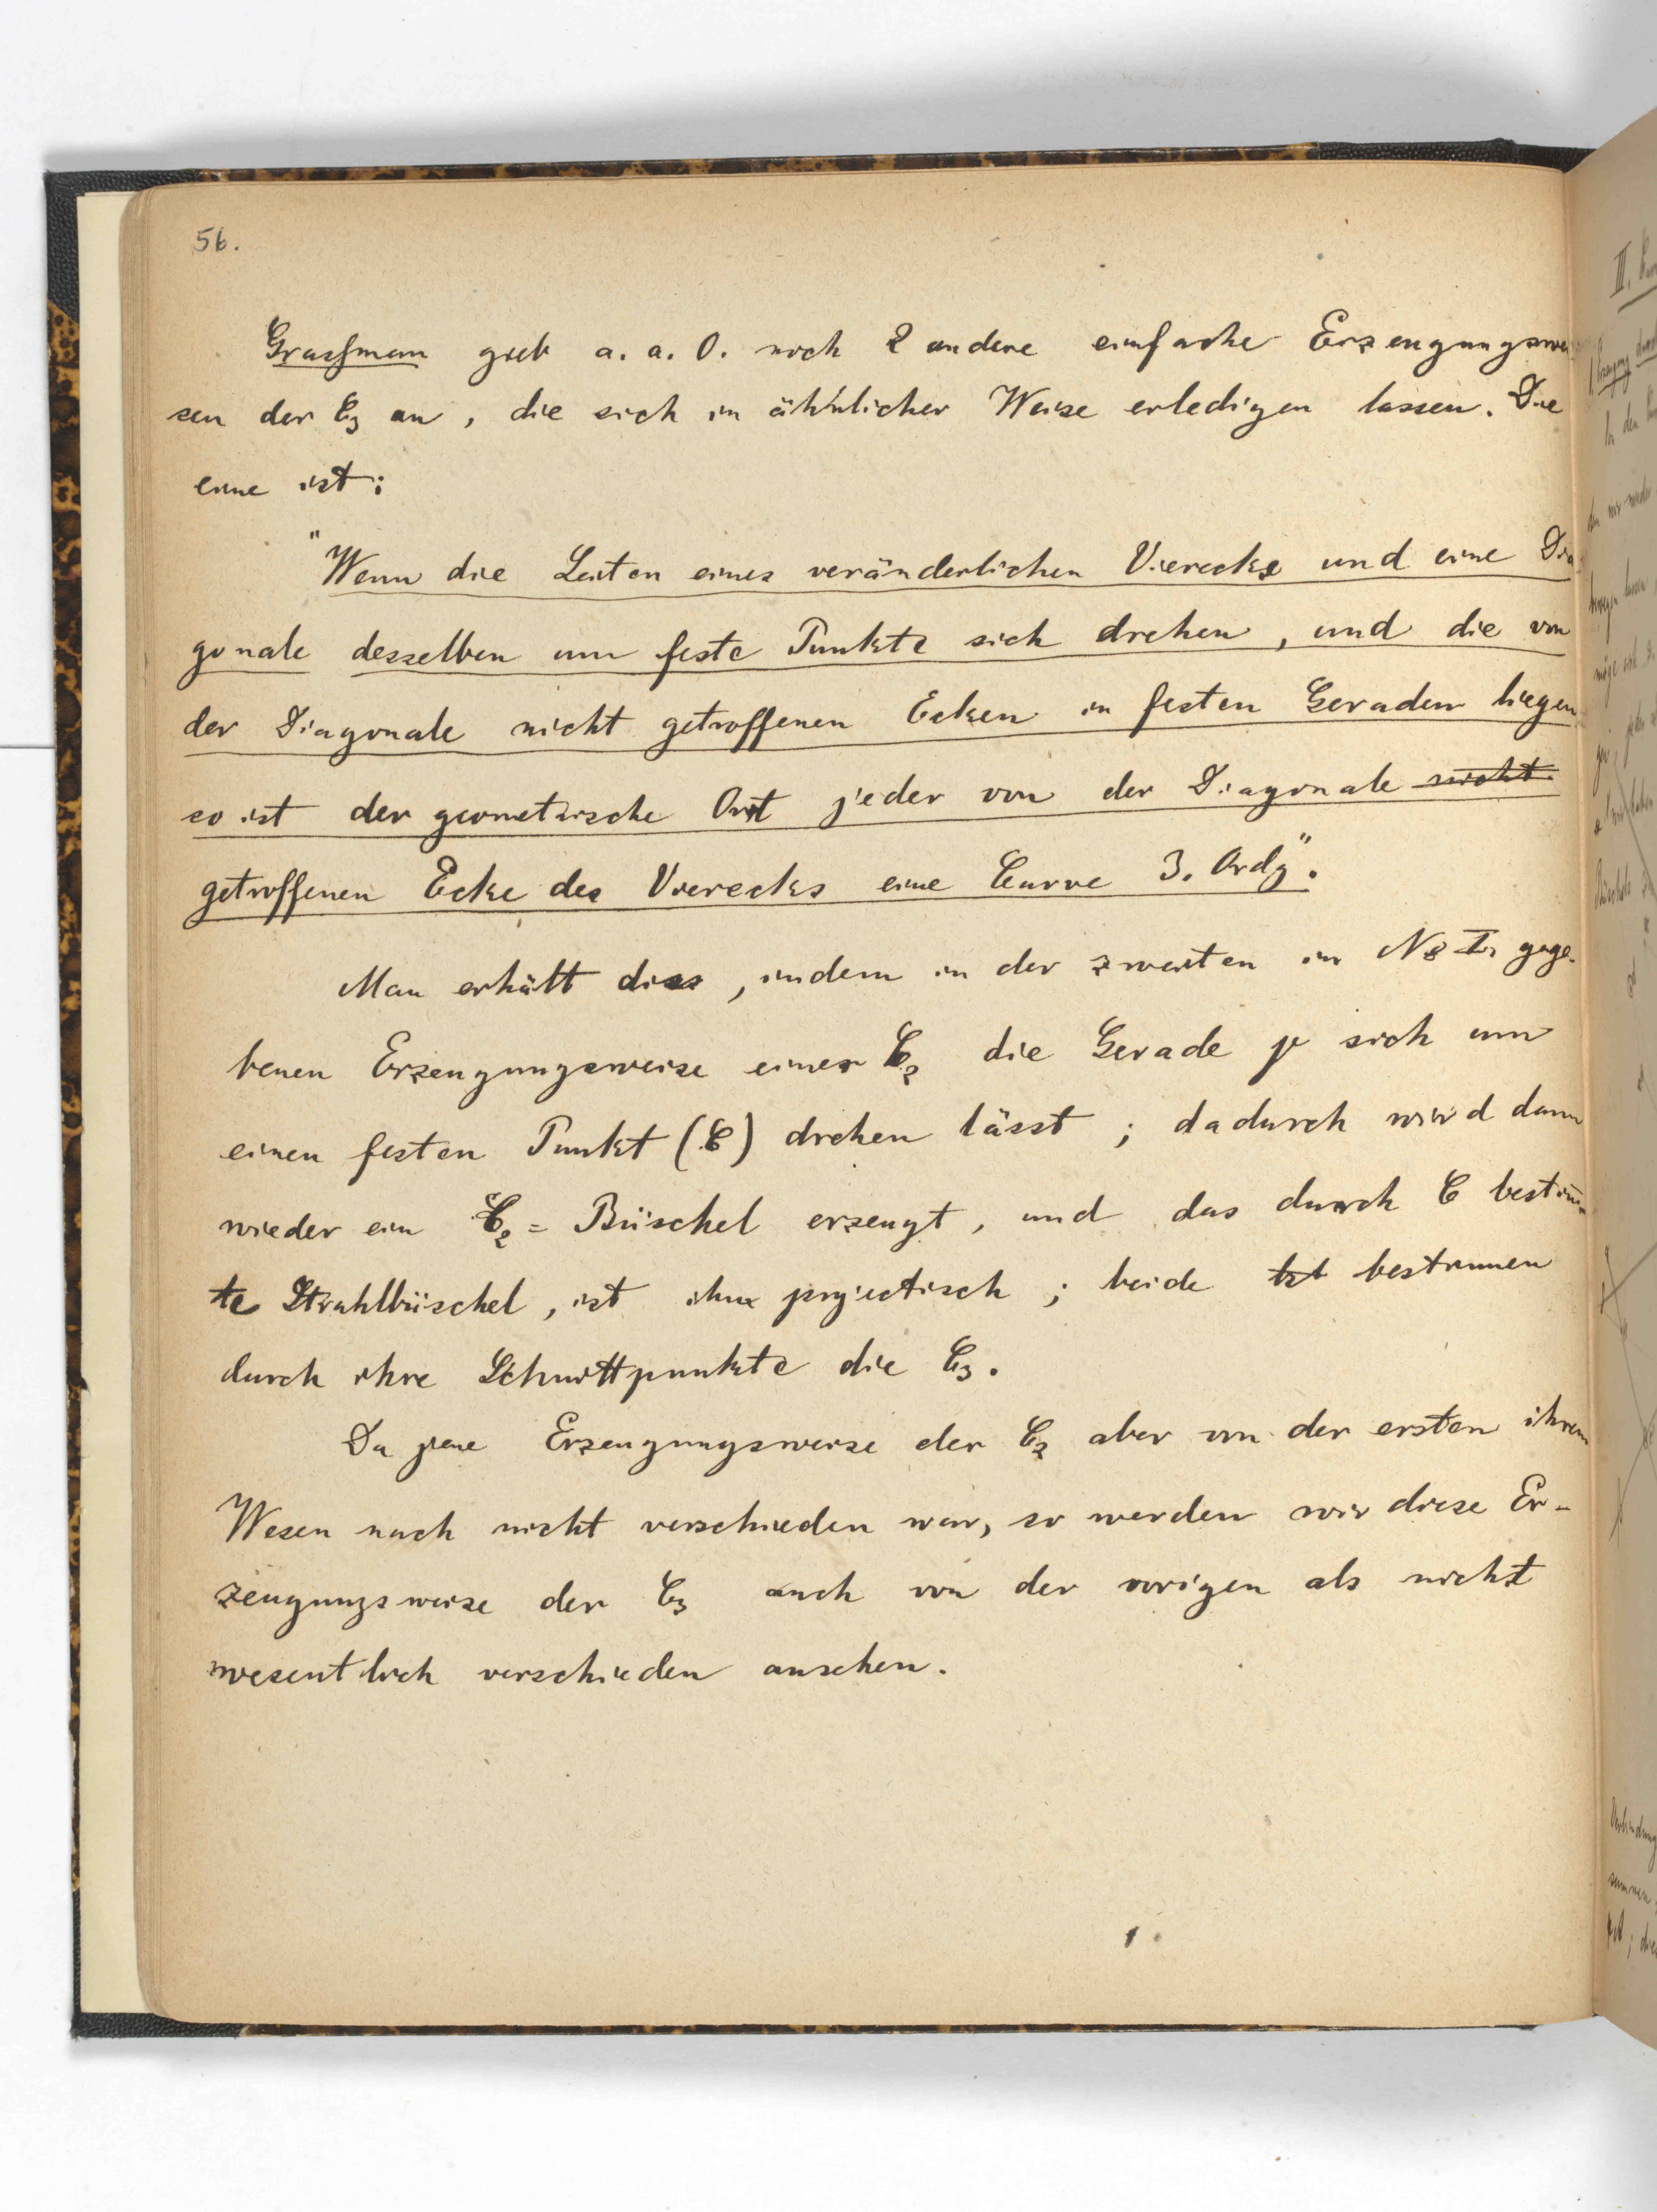 56.
Grassman gieb a. a. O. noch 2 andere einfache Erzeugungswei
sen der C3 an, die sich in ähnlicher Weise erledigen lassen. Die
eine ist:
"Wenn die Seiten eines veränderlichen Vierecks und eine Dia
gonale desselben um feste Punkte sich drehen, und die von
der Diagonale nicht getroffenen Ecken in festen Geraden liegen
so ist der geometrische Ort jeder von der Diagonale nicht
getroffenen Ecke des Vierecks eine Curve 3. Ordg".
Man erhält dies, indem in der zweiten in No I, gege-
benen Erzeugungsweise einer C2 die Gerade p sich um
einen festen Punkt (C) drehen lässt; dadurch wird dann
wieder ein C2=Büschel erzeugt, und das durch C bestim̄
te Strahlbüschel, ist ihm projectisch; beide bst bestimmen
durch ihre Schnittpunkte die C3.
Da jene Erzeugungsweise der C2 aber von der ersten ihrem
Wesen nach nicht verschieden war, so werden wir diese Er-
zeugungsweise der C3 auch von der vorigen als nicht
wesentlich verschieden ansehen.